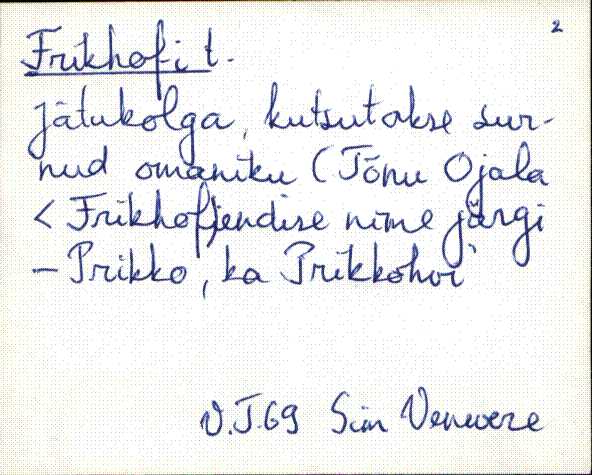 2
Frikhofi t.
jätukolga, kutsutakse sur-
nud omaniku (Tõnu Ojala
< Frikhof) endise nime järgi
– Prikko, ka Prikkohvi
V.J.69 Siin Venevere